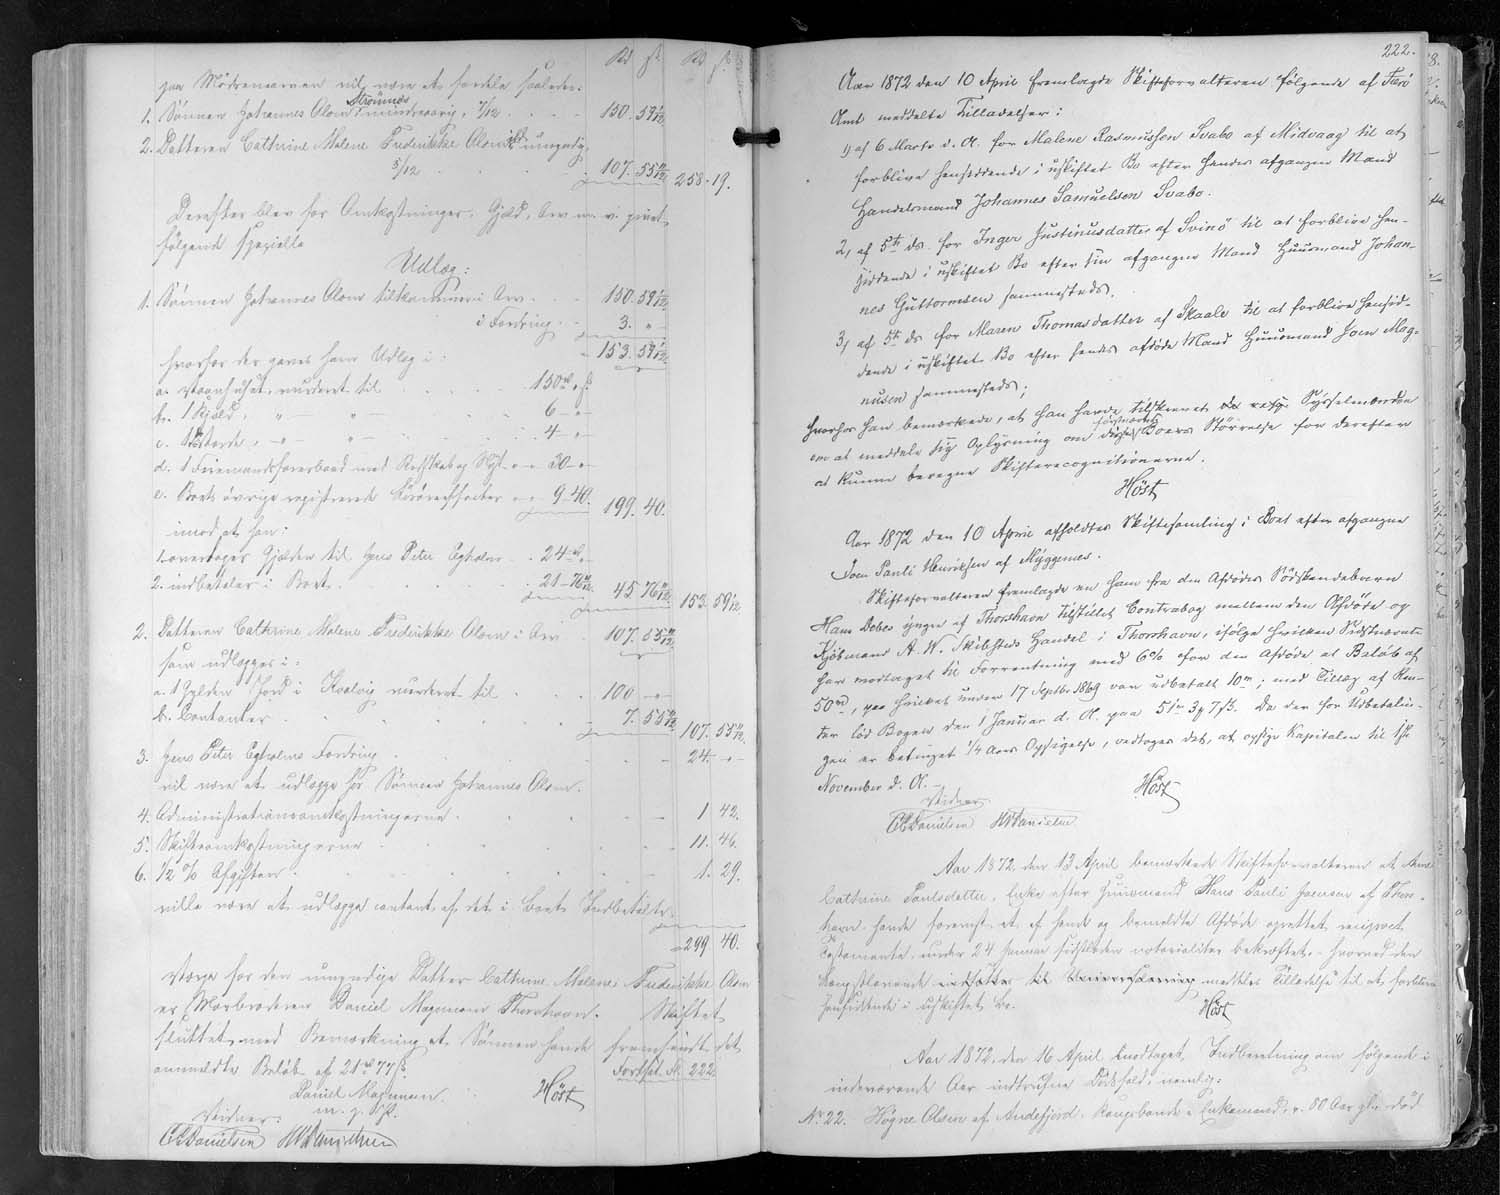 Rd ß. Rd ß.
paa Mødrenearven vil være at fordele saaledes:
1. Sønnen Johannes Olom Strømnæs mindreaarig, 7/12 150. 59 1/12
2. Datteren Cathrine Malene Frederikke Olom umyndig,
5/12 107. 55 11/12 258. 19.
Derefter blev for Omkostninger, Gjæld, Arv m. v. gjort
følgende specielle
Udlæg:
1. Sønnen Johannes Olom tilkommer i Arv 150. 59 1/12
i Fordring 3. " -
153. 59 1/12
hvorfor der gaves ham Udlæg i:
a. Vaanhuset, vurderet til 150 rd " ß
b. 1 Kjæld " — " — 6 - " -
c. " — " — 4 - " -
d. 1 Feiemandsfarerbaad med Redskab og Nyst " " 30 - " -
e. Boets øvrige registrerede " " 9 - 40. 199. 40.
imod at han:
1. overtager Gjælden til Jens Peter Egholm 24 rd " -
2. indbetaler i Boet 21 - 76 11/12 45 76 11/12 153. 59 1/12
2. Datteren Cathrine Malene Frederikke Olom i Arv 107. 55 11/12
som udlægges i:
a. 1 Gylden Jord i Kvalvig vurderet til 100 - " -
b. Contanter 7. 55 11/12 107. 55 11/12
3. Jens Peter Egholms Fordring 24. - " -
vil være at udlægge for Sønnen Johannes Olom.
4. Administrationsomkostningerne 1 42.
5. Skifteomkostningerne 11. 46.
6. 1/2 % Afgiften 1. 29.
ville være at udlægge contant af det i Boet Indbetalte.
299 40.
Værge for den umyndige Datter Cathrine Malene Frederikke Olom
er Morbroderen Daniel Magnussen Thorshavn. Skiftet
sluttet med Bemærkning at Sønnen havde fremsendt det
anmeldte Beløb af 21 rd 77 ß. Fortsat Fl. 222
Daniel Magnussen Høst
m. f. P.
Vidner:
C C Danielsen HMDanielsen
222.
Aar 1872 den 10 April fremlagde Skifteforvalteren følgende af Færø
Amt meddelte Tilladelser:
1) af 6 Marts d. A. for Malene Rasmussen Svabo af Midvaag til at
forblive hensiddende i uskiftet Bo efter hendes afgangne Mand
Handelsmand Johannes Samuelsen Svabo.
2, af 5te ds. for Inger Justinusdatter af Svinø til at forblive hen-
siddende i uskiftet Bo efter sin afgangne Mand Huusmand Johan-
nes Guttormsen sammesteds,
3, af 5te ds for Maren Thomasdatter af Skaale til at forblive hensid-
dende i uskiftet Bo efter hendes afdøde Mand Huusmand Joen Mag-
nusen sammesteds;
hvorhos han bemærkede, at han havde tilskrevet de resp. Sysselmænd
om at meddele sig Oplysning om disse førstnævnte Boers Størrelse for derefter
at kunne beregne Skifterecognitionerne.
Høst
Aar 1872 den 10 April afholdtes Skiftesamling i Boet efter afgangne
Joen Pauli Henriksen af Myggenes.
Skifteforvalteren fremlagde en ham fra den Afdødes Sødskendebarn
Hans Debes yngre af Thorshavn tilstillet Contrabog mellem den Afdøde og
Kjøbmand A. W. Skibsteds Handel i Thorshavn, ifølge hvilken Sidstnævnte
har modtaget til Forrentning med 6% for den Afdøde et Beløb af
50 rd, paa hvilket under 17 Septbr. 1869 var udbetalt 10 rd; med Tillæg af Ren-
ter lød Bogen den 1 Januar d. A. paa 51 rd 3 ß 7 ß. Da der for Udbetalin-
gen er betinget 1/4 Aars Opsigelse, vedtoges det, at opsige Kapitalen til 1ste
November d. A. —
Vidner Høst
CCDanielsen HMDanielsen
Aar 1872, den 13 April bemærkede Skifteforvalteren at
Cathrine Poulsdatter, Enke efter Huusmand Hans Pauli Joensen af Thors-
havn havde foreviist et af hende og bemeldte Afdøde oprettet reciproct
Testamente, under 24 Januar sidstleden notorialiter bekræftet, hvorved den
Længstlevende meddeles Tilladelse til at forblive
hensiddende i uskiftet Bo.
Høst
Aar 1872, den 16 April modtaget Indberetning om følgende i
indeværende Aar indtrufne Dødsfald, nemlig:
No. 22. Høgne Olsen af Andefjord. Enkemand, 80 Aar gl. død